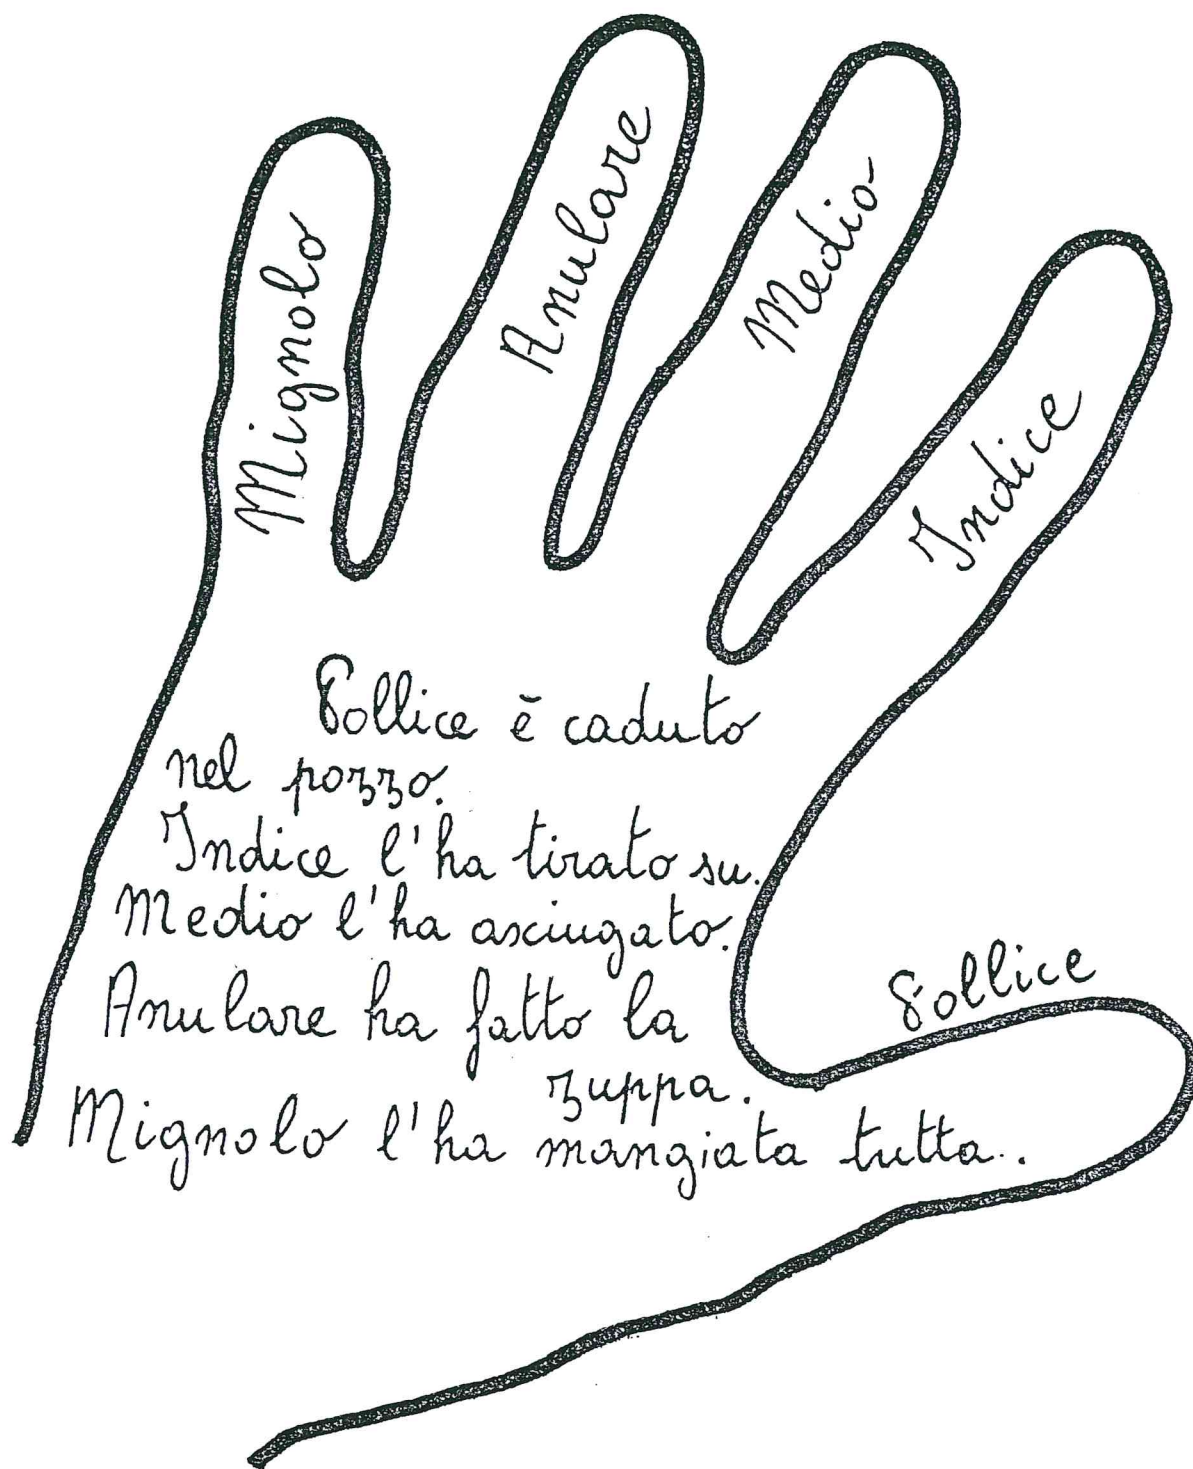 Mignolo
Anulare
Medio
Indice
Pollice è caduto
nel pozzo.
Indice l'ha tirato su.
Medio l'ha asciugato.
Anulare ha fatto la
zuppa.
Mignolo l'ha mangiata tutta..
Pollice